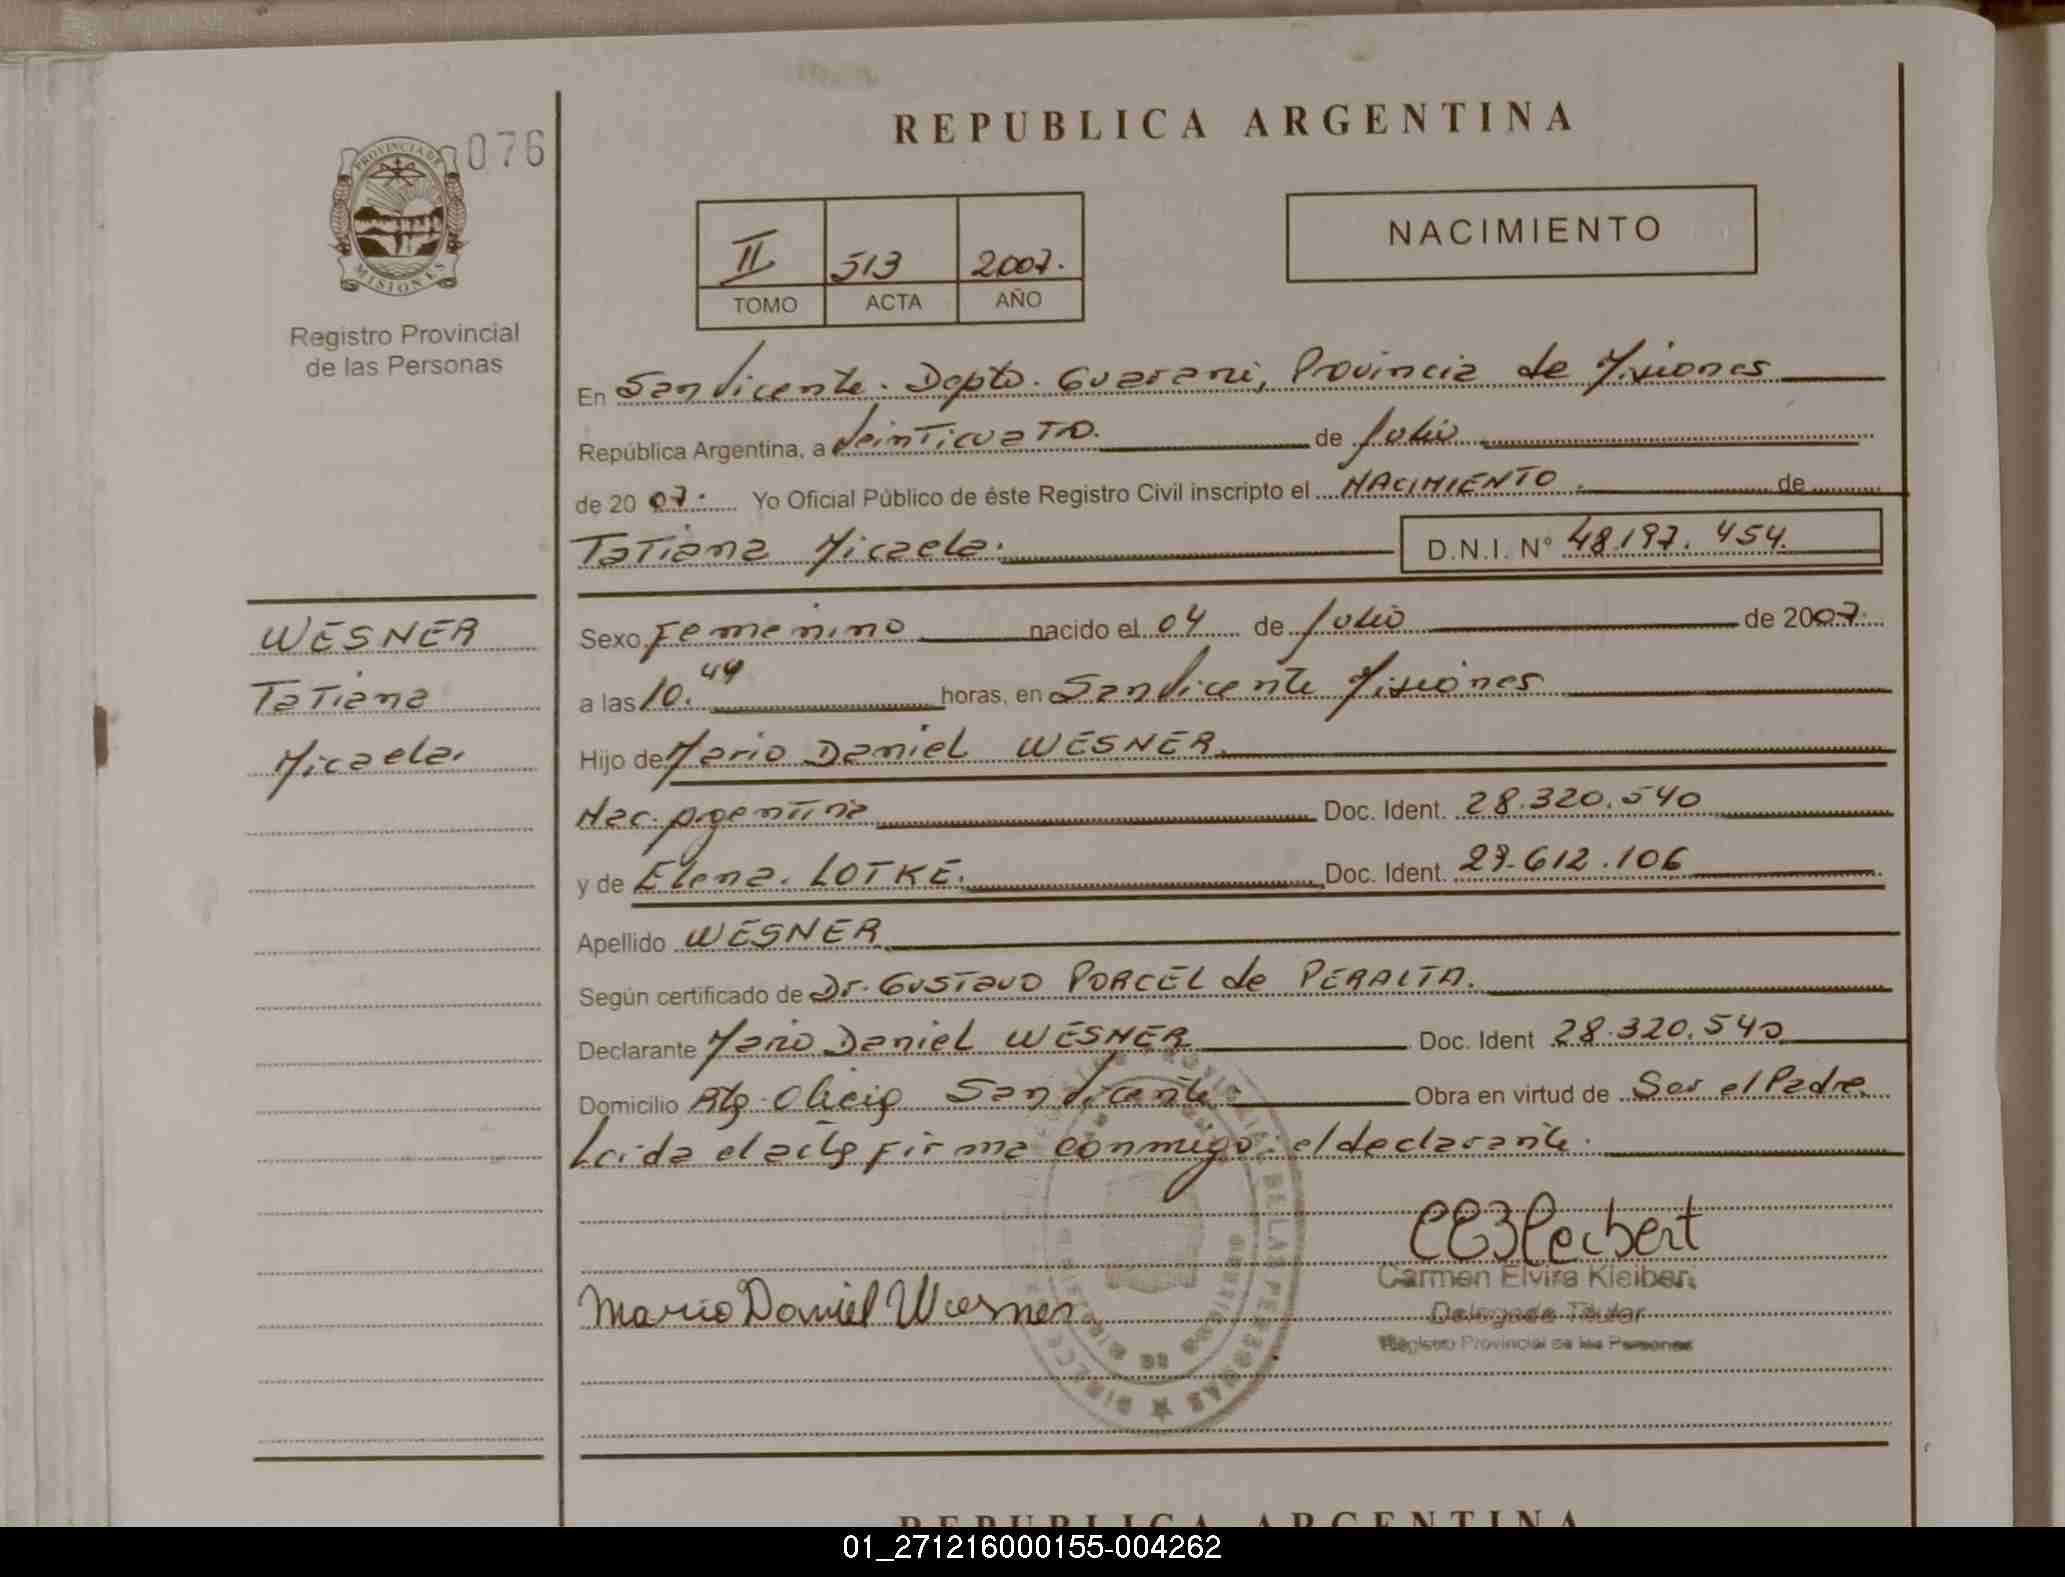 REPUBLICA ARGENTINA
PROVINCIA DE MISIONES
076
Registro Provincial
de las Personas
II 513 2007.
TOMO ACTA AÑO
NACIMIENTO
En San Vicente. Depto. Guarani, Provincia de Misiones
República Argentina, a Veinticuatro. de Julio
de 2007. Yo Oficial Público de éste Registro Civil inscripto el NACIMIENTO. de
Tatiana Micaela. D.N.I. Nº 48.197.454.
WESNER
Tatiana
Micaela.
Sexo Femenino nacido el 04 de Julio de 2007.
a las 10.44 horas, en San Vicente Misiones
Hijo de Mario Daniel WESNER.
Nac. Argentina Doc. Ident. 28.320.540
y de Elena. LOTKE. Doc. Ident. 27.612.106
Apellido WESNER
Según certificado de Dr. Gustavo PORCEL de PERALTA.
Declarante Mario Daniel WESNER Doc. Ident 28.320.540
Domicilio San Vicente Obra en virtud de Ser el Padre
Leida el acta firma conmigo: el declarante.
Mario Daniel Wesner
Carmen Elvira Kleibert
Delegada Titular
Registro Provincial de las Personas
REPUBLICA ARGENTINA
01_271216000155-004262